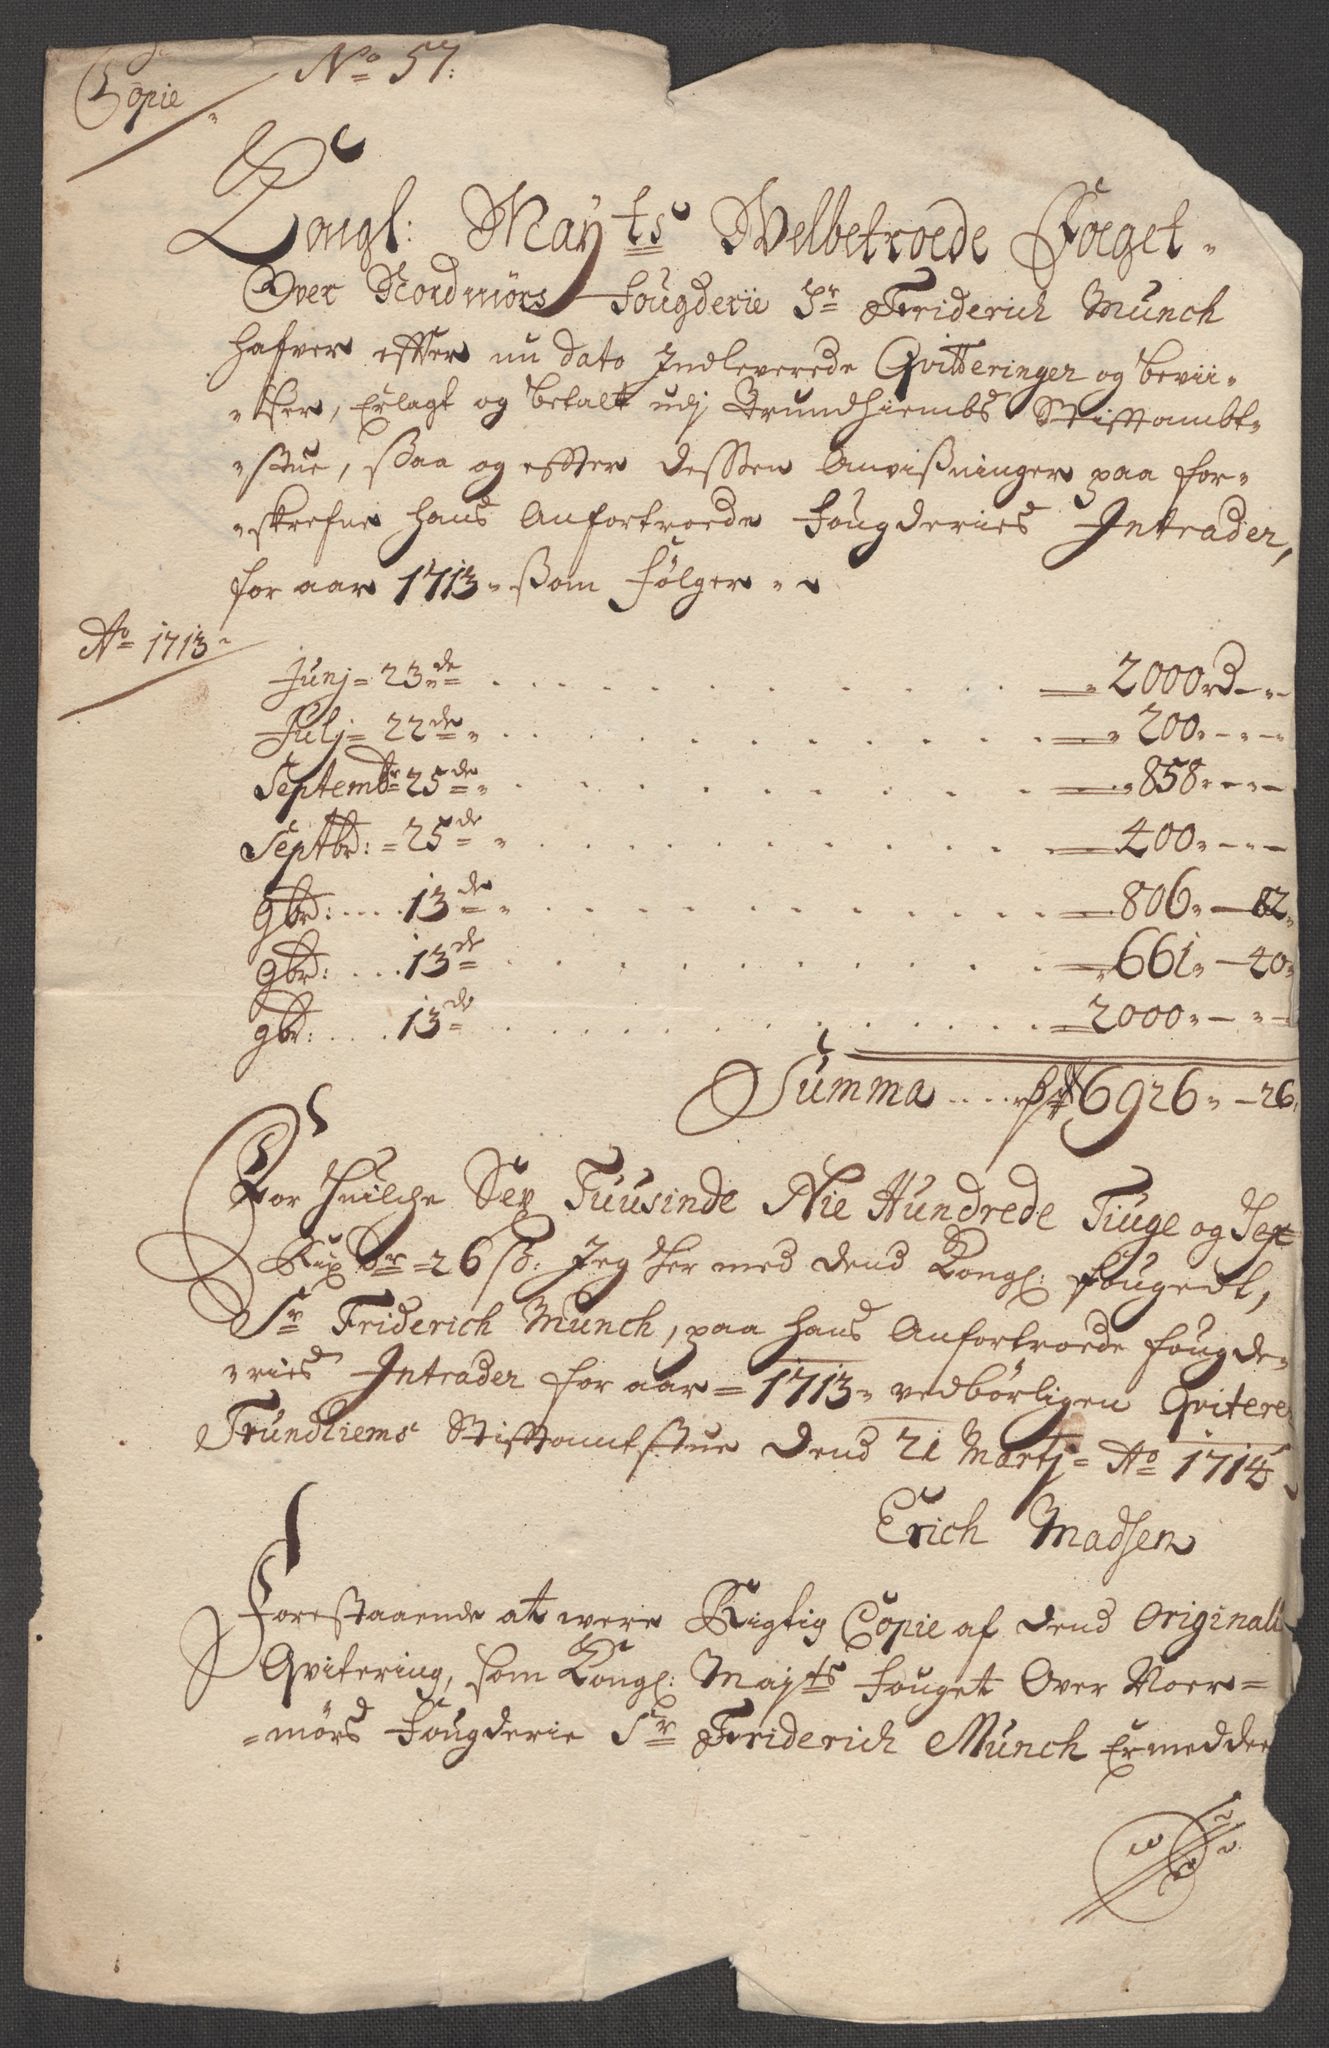 Copie
No 57:
Kongl: Mayts Welbetroede Foeget
Over Nordmørs Fougderie Sr Friderich Munch
hafver effter nu dato Indleverede Qvitteringer og bevii-
ser, Erlagt og betalt udj Trundhiembs Stiftambt-
stue, saa og effter dessen Anvissninger paa for-
skrefne hans Anfortroede Fougderies Intrader,
for aar 1713 som følger
Ao 1713
Junj 23de 2000 rd
Julj 22de 200
Septembr 25de 858
Septbr: 25de 400
9br: 13de 806 82
9br: 13de 661 40
9br: 13de 2000
Summa 6926 26
For hvilche Sex Tuusinde Nie Hundrede Tiuge og Sex
Rixdr 26 s: Jeg her med dend Kongl: fougedt,
Sr Friderich Munch, paa hans Anfortroede fougde-
ries Intrader for aar 1713 vedbørligen Qvitere
Trundhiems Stifftamtstue dend 21 Martj Ao 1714
Erich Madsen
Forestaaende at were Rigtig Copie af dend Original
Qvitering, som Kongl: Majts fouget Over Noer-
mørs Fougderie Sr Friderich Munch Er meddee